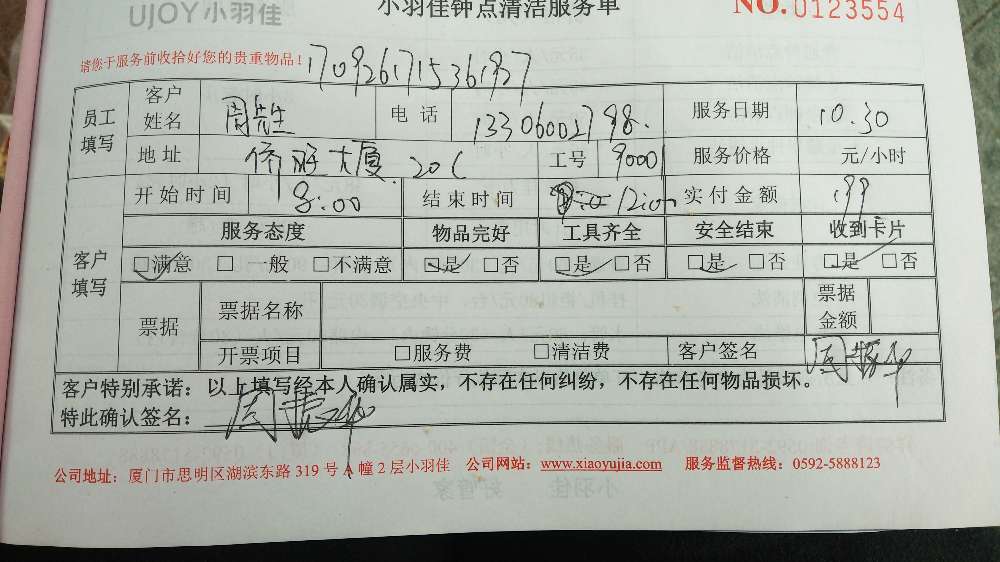 UJOY小羽佳 小羽佳钟点清洁服务单 NO.0123554
请您于服务前收拾好您的贵重物品！ 1709261715361937
员工填写 客户姓名 周先生 电话 13306002798. 服务日期 10.30
地址 侨胜大厦.20C 工号 90001 服务价格 元/小时
客户填写 开始时间 8:00 结束时间 12:00 实付金额 199
服务态度 物品完好 工具齐全 安全结束 收到卡片
☑满意 □一般 □不满意 ☑是 □否 ☑是 □否 ☑是 □否 ☑是 □否
票据 票据名称 票据金额
开票项目 □服务费 □清洁费 客户签名
客户特别承诺：以上填写经本人确认属实，不存在任何纠纷，不存在任何物品损坏。
特此确认签名：
公司地址：厦门市思明区湖滨东路 319 号 A 幢 2 层小羽佳 公司网站：www.xiaoyujia.com 服务监督热线：0592-5888123